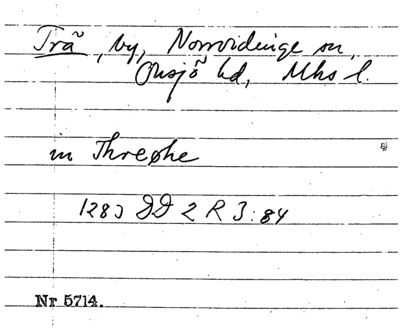 Trä, by, Norrvidinge sn,
Onsjö hd, Mhs l.
in Threøhe
1283 DD 2 R 3:84
Nr 5714.